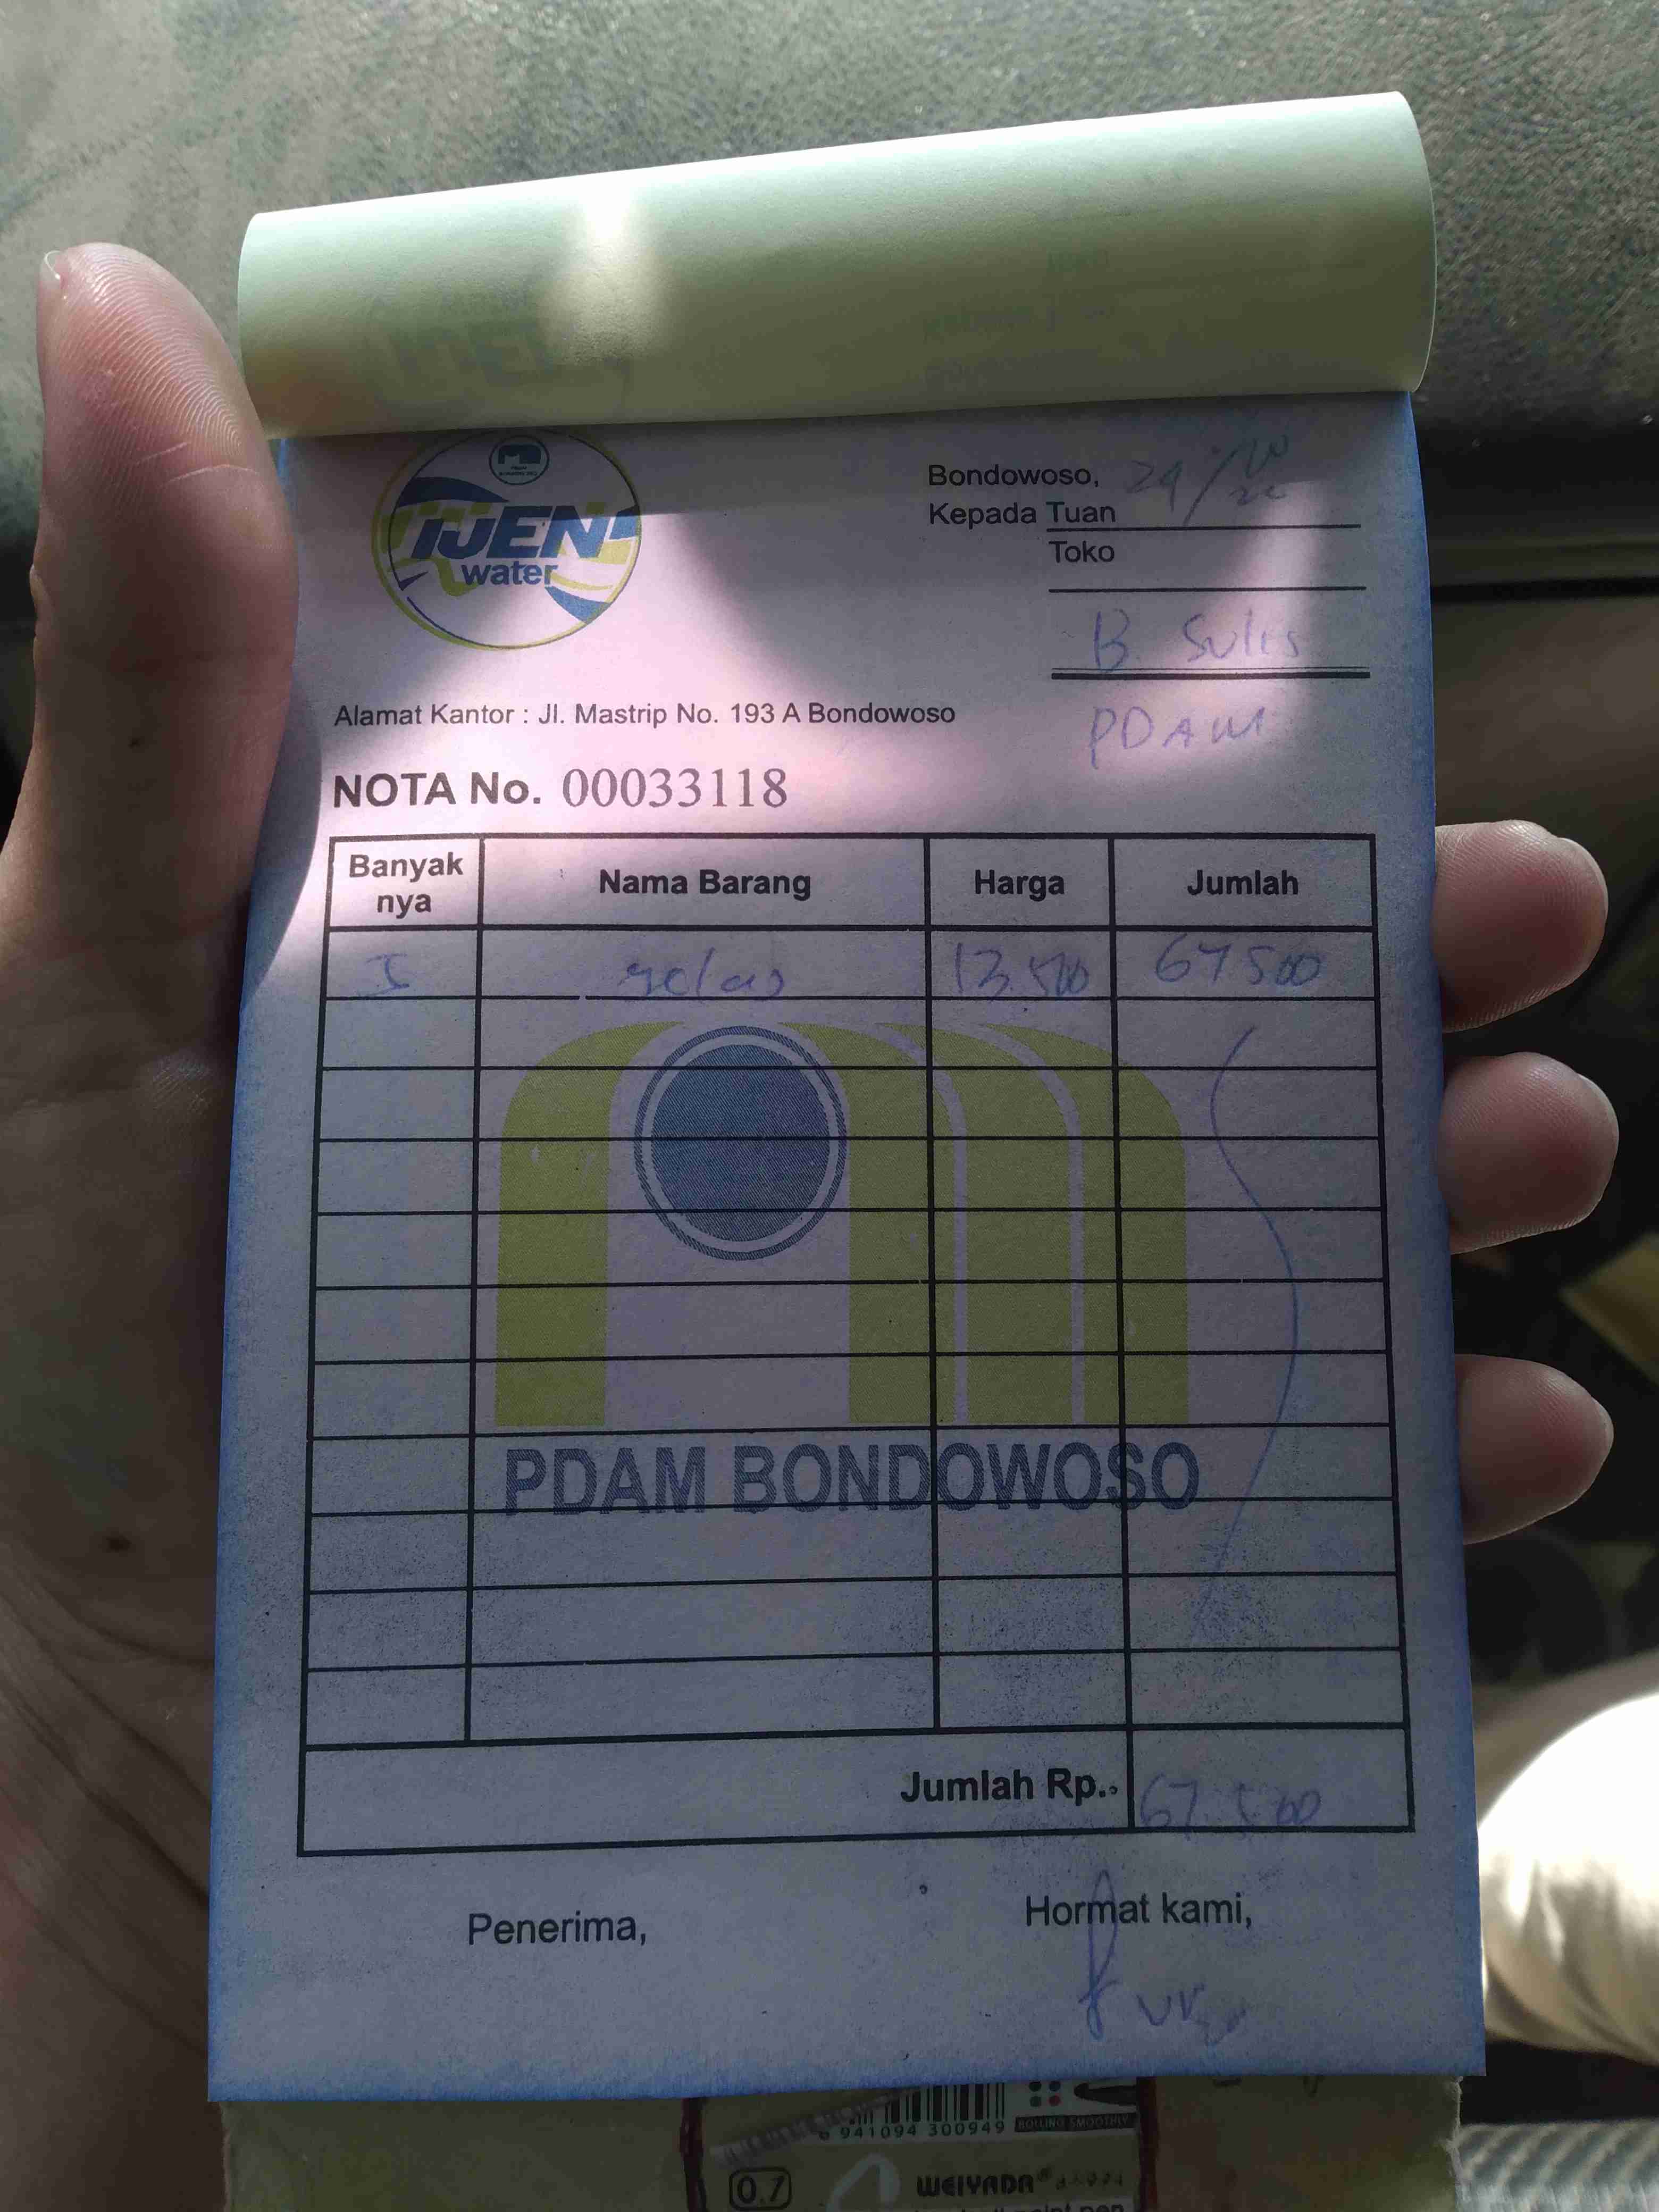 IJEN
water
Bondowoso, 24/10
20
Kepada Tuan
Toko
B. Sulis
PDAM
Alamat Kantor : Jl. Mastrip No. 193 A Bondowoso
NOTA No. 00033118
Banyak nya Nama Barang Harga Jumlah
5 gelas 13.500 67500
PDAM BONDOWOSO
Jumlah Rp.. 67.500
Penerima, Hormat kami,
6 941094 300949
ROLLING SMOOTHLY
0.7 WEIYADA®